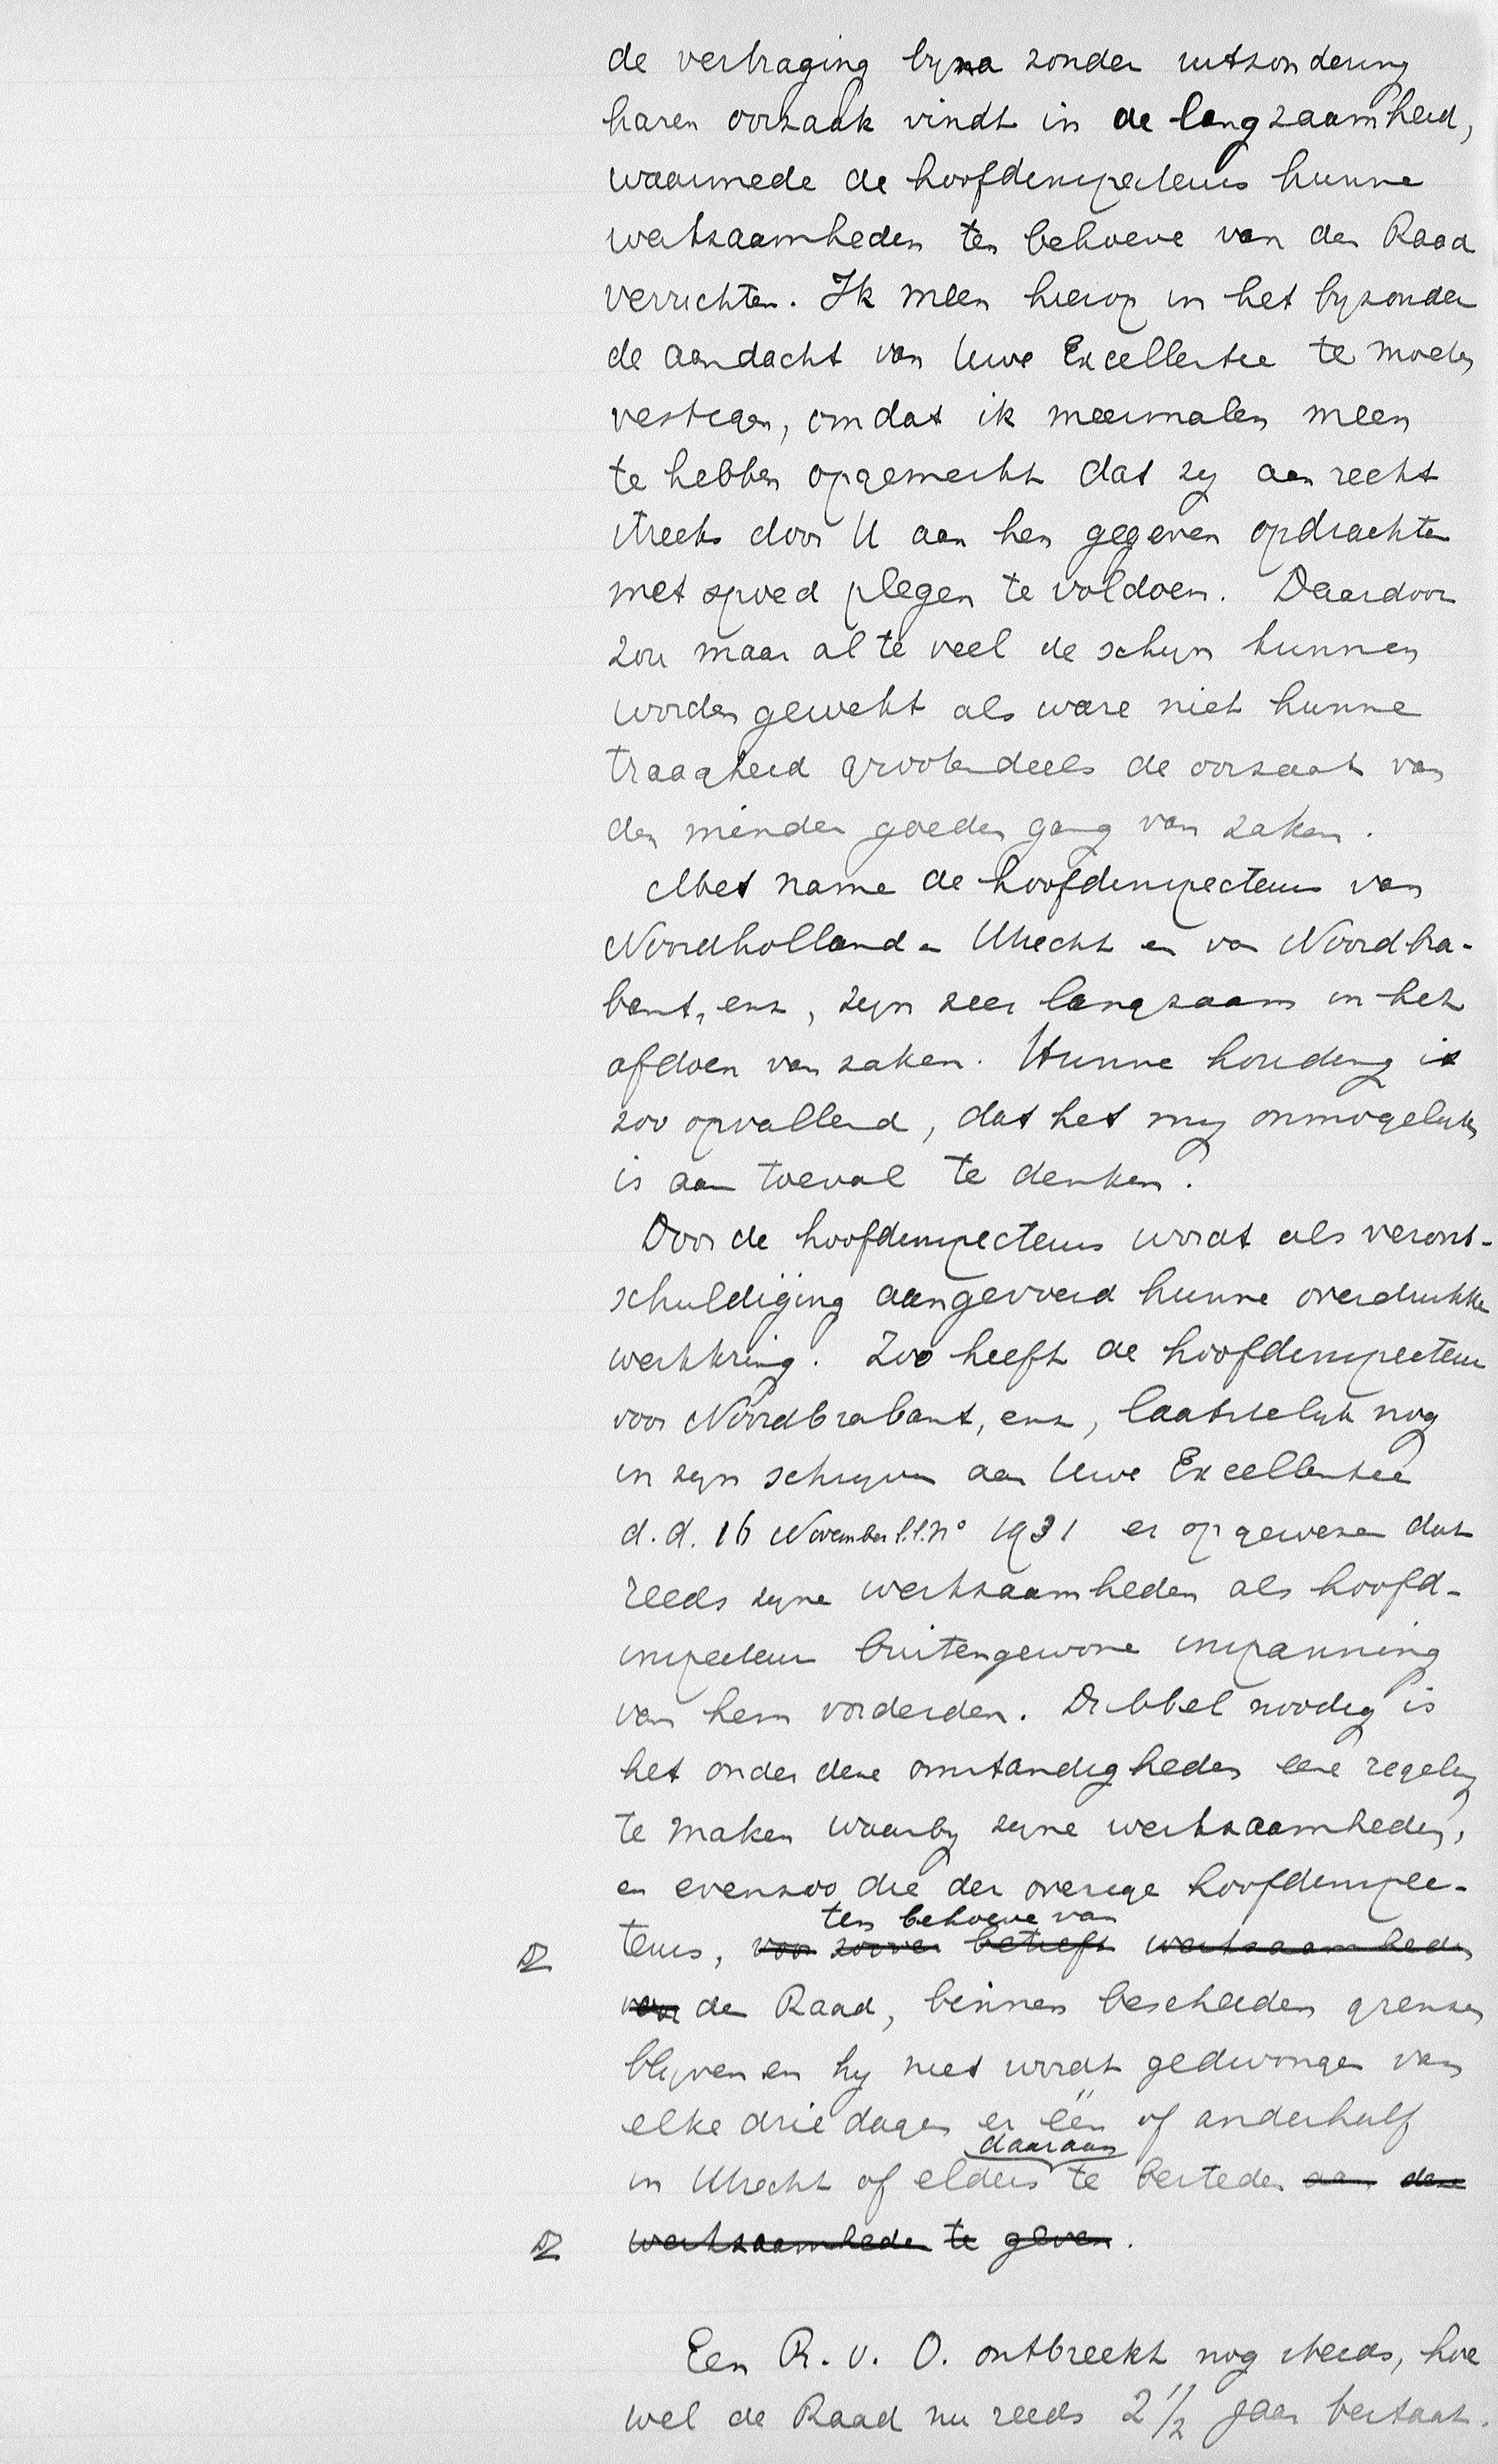 de vertraging byna zonder uitzondering
haren oorzaak vindt in de langzaamheid,
waarmede de hoofdinspecteurs hunne
werkzaamheden ten behoeve van den Raad
verrichten. Ik meen hierop in het byzonder
de aandacht van Uwe Excellentie te moeten
vestigen, omdat ik meermalen meen
te hebben opgemerkt dat zy aan recht
streeks door U aan hen gegeven opdrachten
met spoed plegen te voldoen. Daardoor
zou maar al te veel de schyn kunnen
worden gewekt als ware niet hunne
traagheid grootendeels de oorzaak van
den minder goeden gang van zaken.
Met name de hoofdinspecteurs van
Noordholland - Utrecht en van Noordbra-
bant, enz, zyn zeer langzaam in het
afdoen van zaken. Hunne houding is
zoo opvallend, dat het my onmogelyk
is aan toeval te denken.
Door de hoofdinspecteurs wordt als veront-
schuldiging aangevoerd hunne overdrukke
werkkring. Zoo heeft de hoofdinspecteur
voor Noordbrabant, enz, laatstelyk nog
in zyn schryven aan Uwe Excellentie
d.d. 16 November l.l. No 1931 er op gewezen dat
reeds zyne werkzaamheden als hoofd-
inspecteur buitengewone inspanning
van hem vorderden. Dubbel noodig is
het onder deze omstandigheden eene regeling
te maken waarby zyne werkzaamheden,
en evenzoo die der overige hoofdinspec-
ten behoeve van
teurs, voor zoover betreft werkzaamheden
voor den Raad, binnen bescheiden grenzen
blyven en hy niet wordt gedwongen van
elke drie dagen er één of anderhalf
daaraan
in Utrecht of elders te besteden aan deze
werkzaamheden te geven.
Een R. v. O. ontbreekt nog steeds, hoe
wel de Raad nu reeds 2 1/2 jaar bestaat.